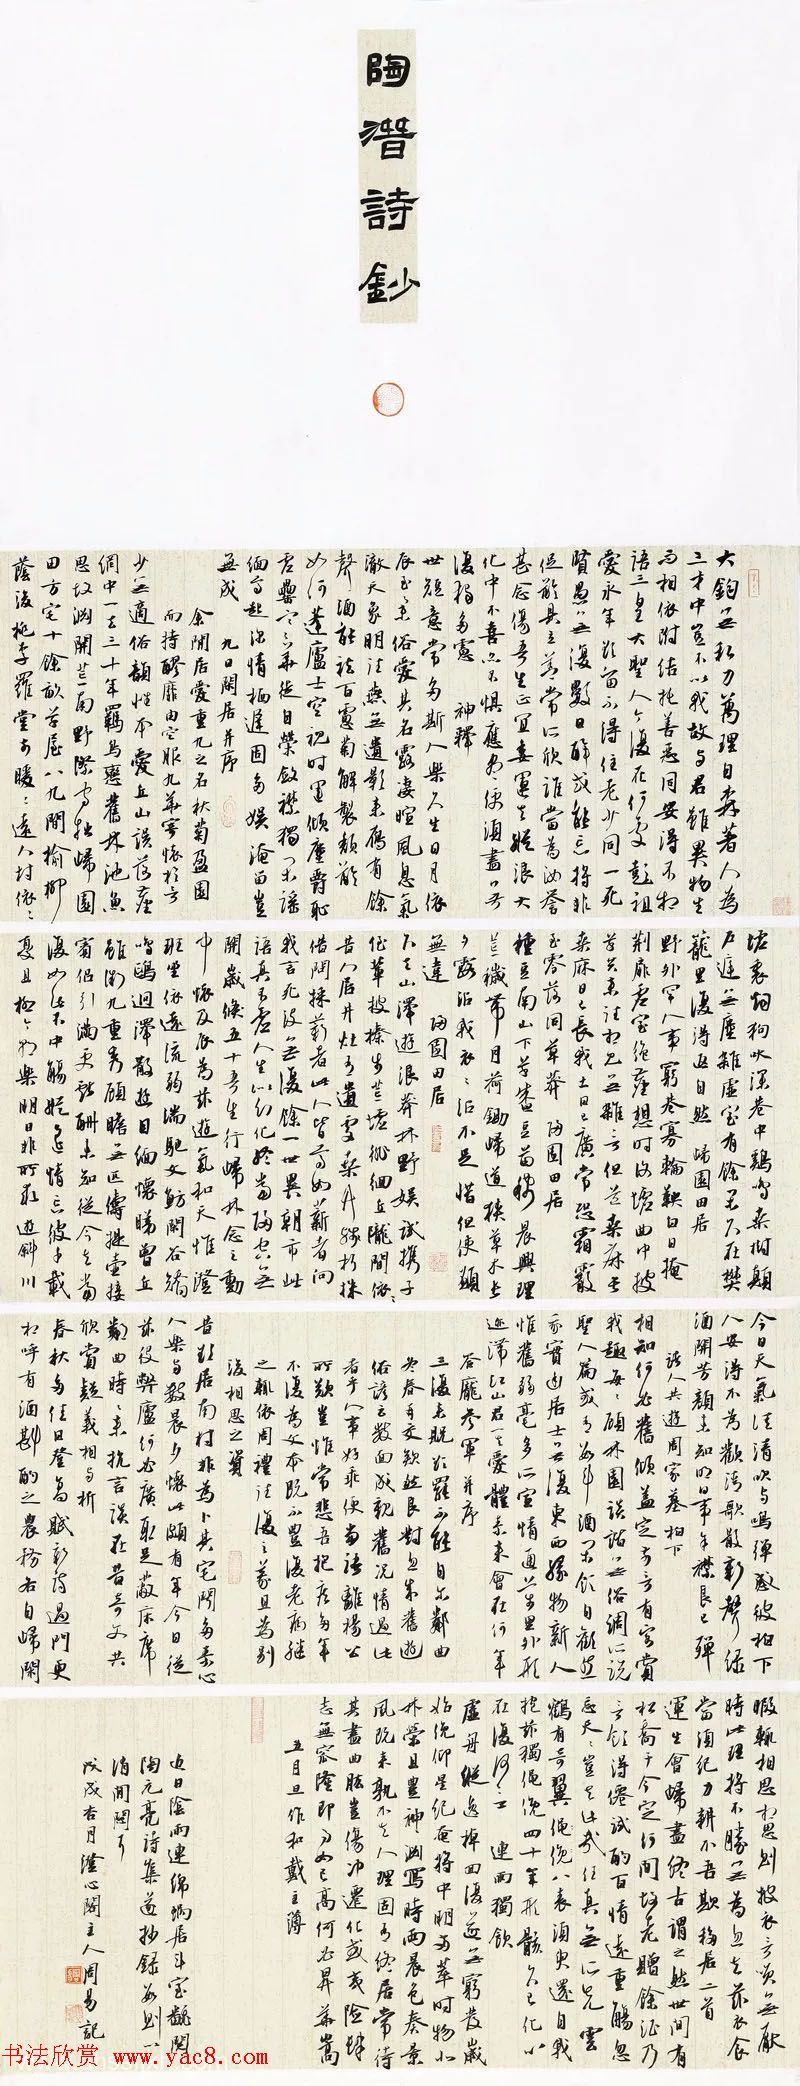 陶潛詩鈔
大鈞無私力萬理自森著人為
三才中豈不以我故與君雖異物生
而相依附結托善惡同安得不相
語三皇大聖人今復在何處彭祖
愛永年欲留不得住老少同一死
賢愚無復數日醉或能忘將非
促齡具立善常所欣誰當為汝譽
甚念傷吾生正宜委運去縱浪大
化中不喜亦不懼應盡便須盡無
復獨多慮 神釋
世短意常多斯人樂久生日月依
辰至舉俗愛其名露淒暄風息氣
澈天象明往燕無遺影來雁有餘
聲酒能祛百慮菊解製頹齡
如何蓬廬士空視時運傾塵爵恥
虛罍寒華徒自榮斂襟獨閒謠
緬焉起深情棲遲固多娛淹留豈
無成 九日閑居并序
余閑居愛重九之名秋菊盈園
而持醪靡由空服九華寄懷於言
少無適俗韻性本愛丘山誤落塵
網中一去三十年羈鳥戀舊林池魚
思故淵開荒南野際守拙歸園
田方宅十餘畝草屋八九間榆柳
蔭後桃李羅堂前暖々遠人村依々
墟里煙狗吠深巷中鷄鳴桑樹顛
戶庭無塵雜虛室有餘閒久在樊
籠里復得返自然 歸園田居
野外罕人事窮巷寡輪鞅白日掩
荊扉虛室絕塵想時復墟曲中披
草共來往相見無雜言但道桑麻長
桑麻日已長我土日已廣常恐霜霰
至零落同草莽 歸園田居
種豆南山下草盛豆苗稀晨興理
荒穢帶月荷鋤歸道狹草木長
夕露沾我衣々沾不足惜但使願
無違 歸園田居
久去山澤遊浪莽林野娛試携子
侄輩披榛步荒墟徘徊丘隴間依々
昔人居井灶有遺處桑竹殘朽株
借問採薪者此人皆焉如薪者向
我言死沒無復餘一世異朝市此
語真不虛人生似幻化終當歸空無
開歲倏五十吾生行歸休念之動
中懷及辰為茲遊氣和天惟澄
班坐依遠流弱湍馳文魴閑谷矯
鳴鷗迥澤散遊目緬懷睇曾丘
雖微九重秀顧瞻無匹儔提壺接
賓侶引滿更獻酬未知從今去當
復如此不中觴縱遙情忘彼千載
憂且極今朝樂明日非所求 遊斜川
今日天氣佳清吹與鳴彈感彼柏下
人安得不為歡清歌散新聲綠
酒開芳顏未知明日事余襟良已殫
諸人共遊周家墓柏下
相知何必舊傾蓋定前言有客賞
我趣每々顧林園談諧無俗調所說
聖人篇或有數斗酒閒飲自歡然
我實幽居士無復東西緣物新人
惟舊弱毫多所宣情通萬里外形
跡滯江山君其愛體素來會在何年
答龐參軍并序
三復來貺欲罷不能自爾鄰曲
冬春再交欵然良對忽成舊遊
俗諺云數面成親舊況情過此
者乎人事好乖便當語離楊公
所歎豈惟常悲吾抱疾多年
不復為文本既不豐復老病繼
之輒依周禮往復之義且為別
後相思之資
昔欲居南村非為卜其宅聞多素心
人樂與數晨夕懷此頗有年今日從
茲役弊廬何必廣取足蔽床席
鄰曲時々來抗言談在昔奇文共
欣賞疑義相與析
春秋多佳日登高賦新詩過門更
相呼有酒斟酌之農務各自歸閑
暇輒相思相思則披衣言笑無厭
時此理將不勝無為忽去茲衣食
當須紀力耕不吾欺 移居二首
運生會歸盡終古謂之然世間有
松喬于今定何間故老贈余酒乃
言飲得僊試酌百情遠重觴忽
忘天々豈去此哉任真無所先雲
鶴有奇翼僶俛八表須臾還自我
抱茲獨僶俛四十年形骸久已化心
在復何言 連雨獨飲
虛舟縱逸棹回復遂無窮發歲
始俛仰星紀奄將中明兩萃時物北
林榮且豐神淵寫時雨晨色奏景
風既來孰不去人理固有終居常待
其盡曲肱豈傷沖遷化或夷險肆
志無窊隆即事如已高何必昇華嵩
五月旦作和戴主簿
近日陰雨連綿蝸居斗室翻閱
陶元亮詩集遂抄錄數則以
消閒耳
戊戌杏月澄心閣主人周易記
书法欣赏 www.yac8.com